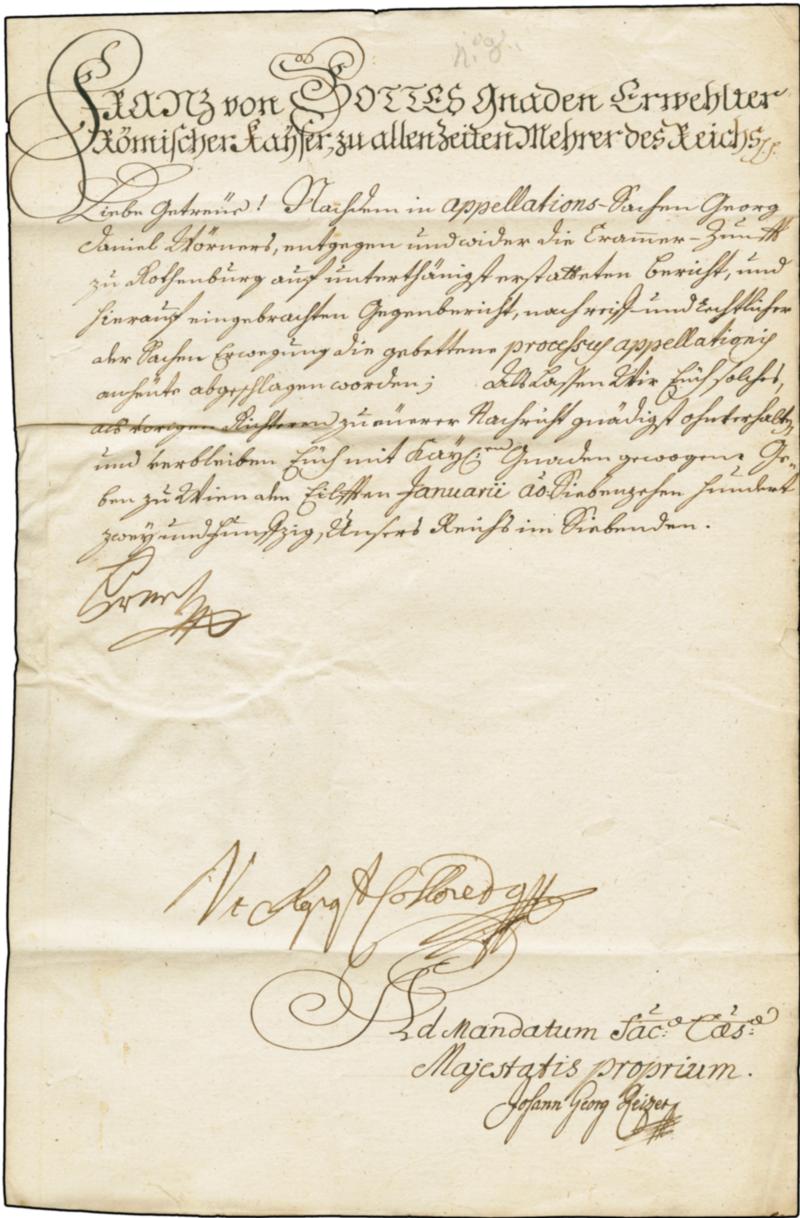 Franz von Gottes Gnaden Erwehlter
Römischer Kayser, zu allen Zeiten Mehrer des Reichs
Liebe Getreüe! Nachdem in appellations-Sachen Georg
Daniel Wörners, entgegen und wider die Cramer-Zunfft
zu Rothenburg auf unterthänigst erstatteten Bericht, und
hierauf eingebrachten Gegenbericht, nach reiff- und rechtlicher
der Sachen Erwegung die gebettene processus appellationis
anheüte abgeschlagen worden; Als lassen Wir Euch solches,
als vorigen Richteren zu eüerer Nachricht gnädigst ohnverhalten,
und verbleiben Euch mit Kayl.en Gnaden gewogen. Ge-
ben zu Wien den Eilfften Januarii ao. Siebenzehen hundert
zwey und Funffzig, Unsers Reichs im Siebenden.
Franz
Vt Colloredo
Ad Mandatum Sac: Caes:
Majestatis proprium.
Johann Georg Reizer